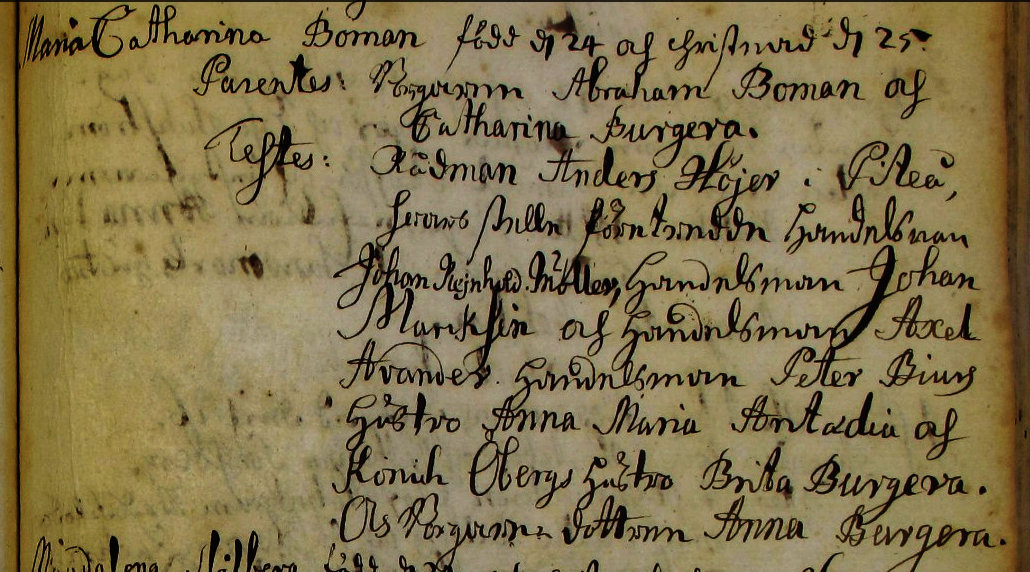 Maria Catharina Boman född d 24 och christnad d 25.
Parentes: Borgaren Abraham Boman och
Catharina Burgera.
Testes: Rådman Anders Höjer i Piteå,
hwars ställe förträdde Handelsman
Johan Rejnhold Möller, Handelsman Johan
Marcksin och Handelsman Axel
Avander. Handelsman Peter Biurs
Hustro Anna Maria Antædia och
Öbergs Hustro Brita Burgera.
Ols Borgarens dottren Anna Burgera.
Magdalena född